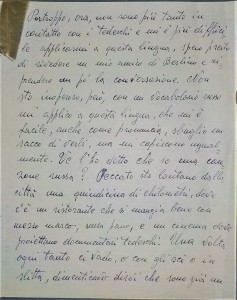 Purtroppo, ora, non sono più tanto in
contatto con i tedeschi e mi è più diffici,
le applicarmi a questa lingua, spero presto
di rivedere un mio amico di Berlino e ri,
prendere un po' la conversazione. Non
sto inoperoso, però, con un vocabolario russo
mi applico a questa lingua, che mi è
facile, anche come pronuncia, sbaglio un
sacco di verbi, ma mi capiscono ugual,
mente. Te l'ho detto che so una can
zone russa? Peccato sto lontano dalla
città una quindicina di chilometri, dove
c'è un ristorante che si mangia bene con
mezzo marco, senza pane, e un cinema dove
proiettano documentari tedeschi. Una volta
ogni tanto ci vado, o con gli sci o in
slitta, dimenticavo dirti che sono già un